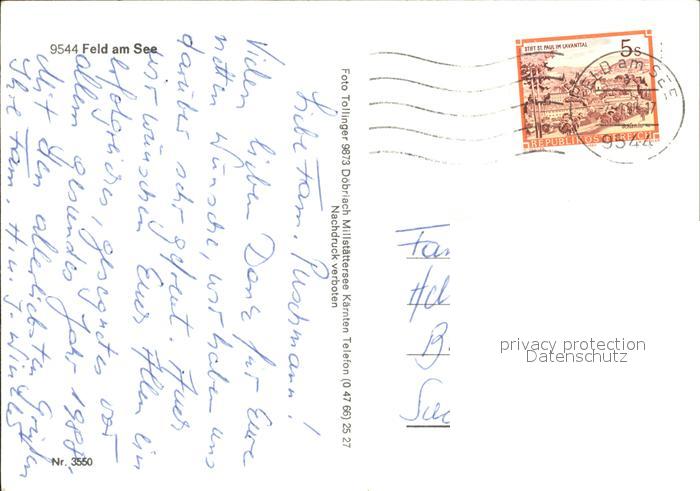 9544 Feld am See
Liebe Fam. Puschmann!
Vielen lieben Dank für Eure
netten Wünsche, wir haben uns
darüber sehr gefreut. Auch
wir wünschen Euch Allen ein
erfolgreiches, gesegnetes vor
allem gesundes Jahr 1988.
Mit den allerliebsten Grüßen
Ihre Fam. H. u.
Nr. 3550
Foto Tollinger 9873 Döbriach Millstättersee Kärnten Telefon (0 47 66) 25 27
Nachdruck verboten
STIFT ST. PAUL IM LAVANTTAL
5s
REPUBLIK ÖSTERREICH
FELD am SEE
9544
Fam
B.
privacy protection
Datenschutz